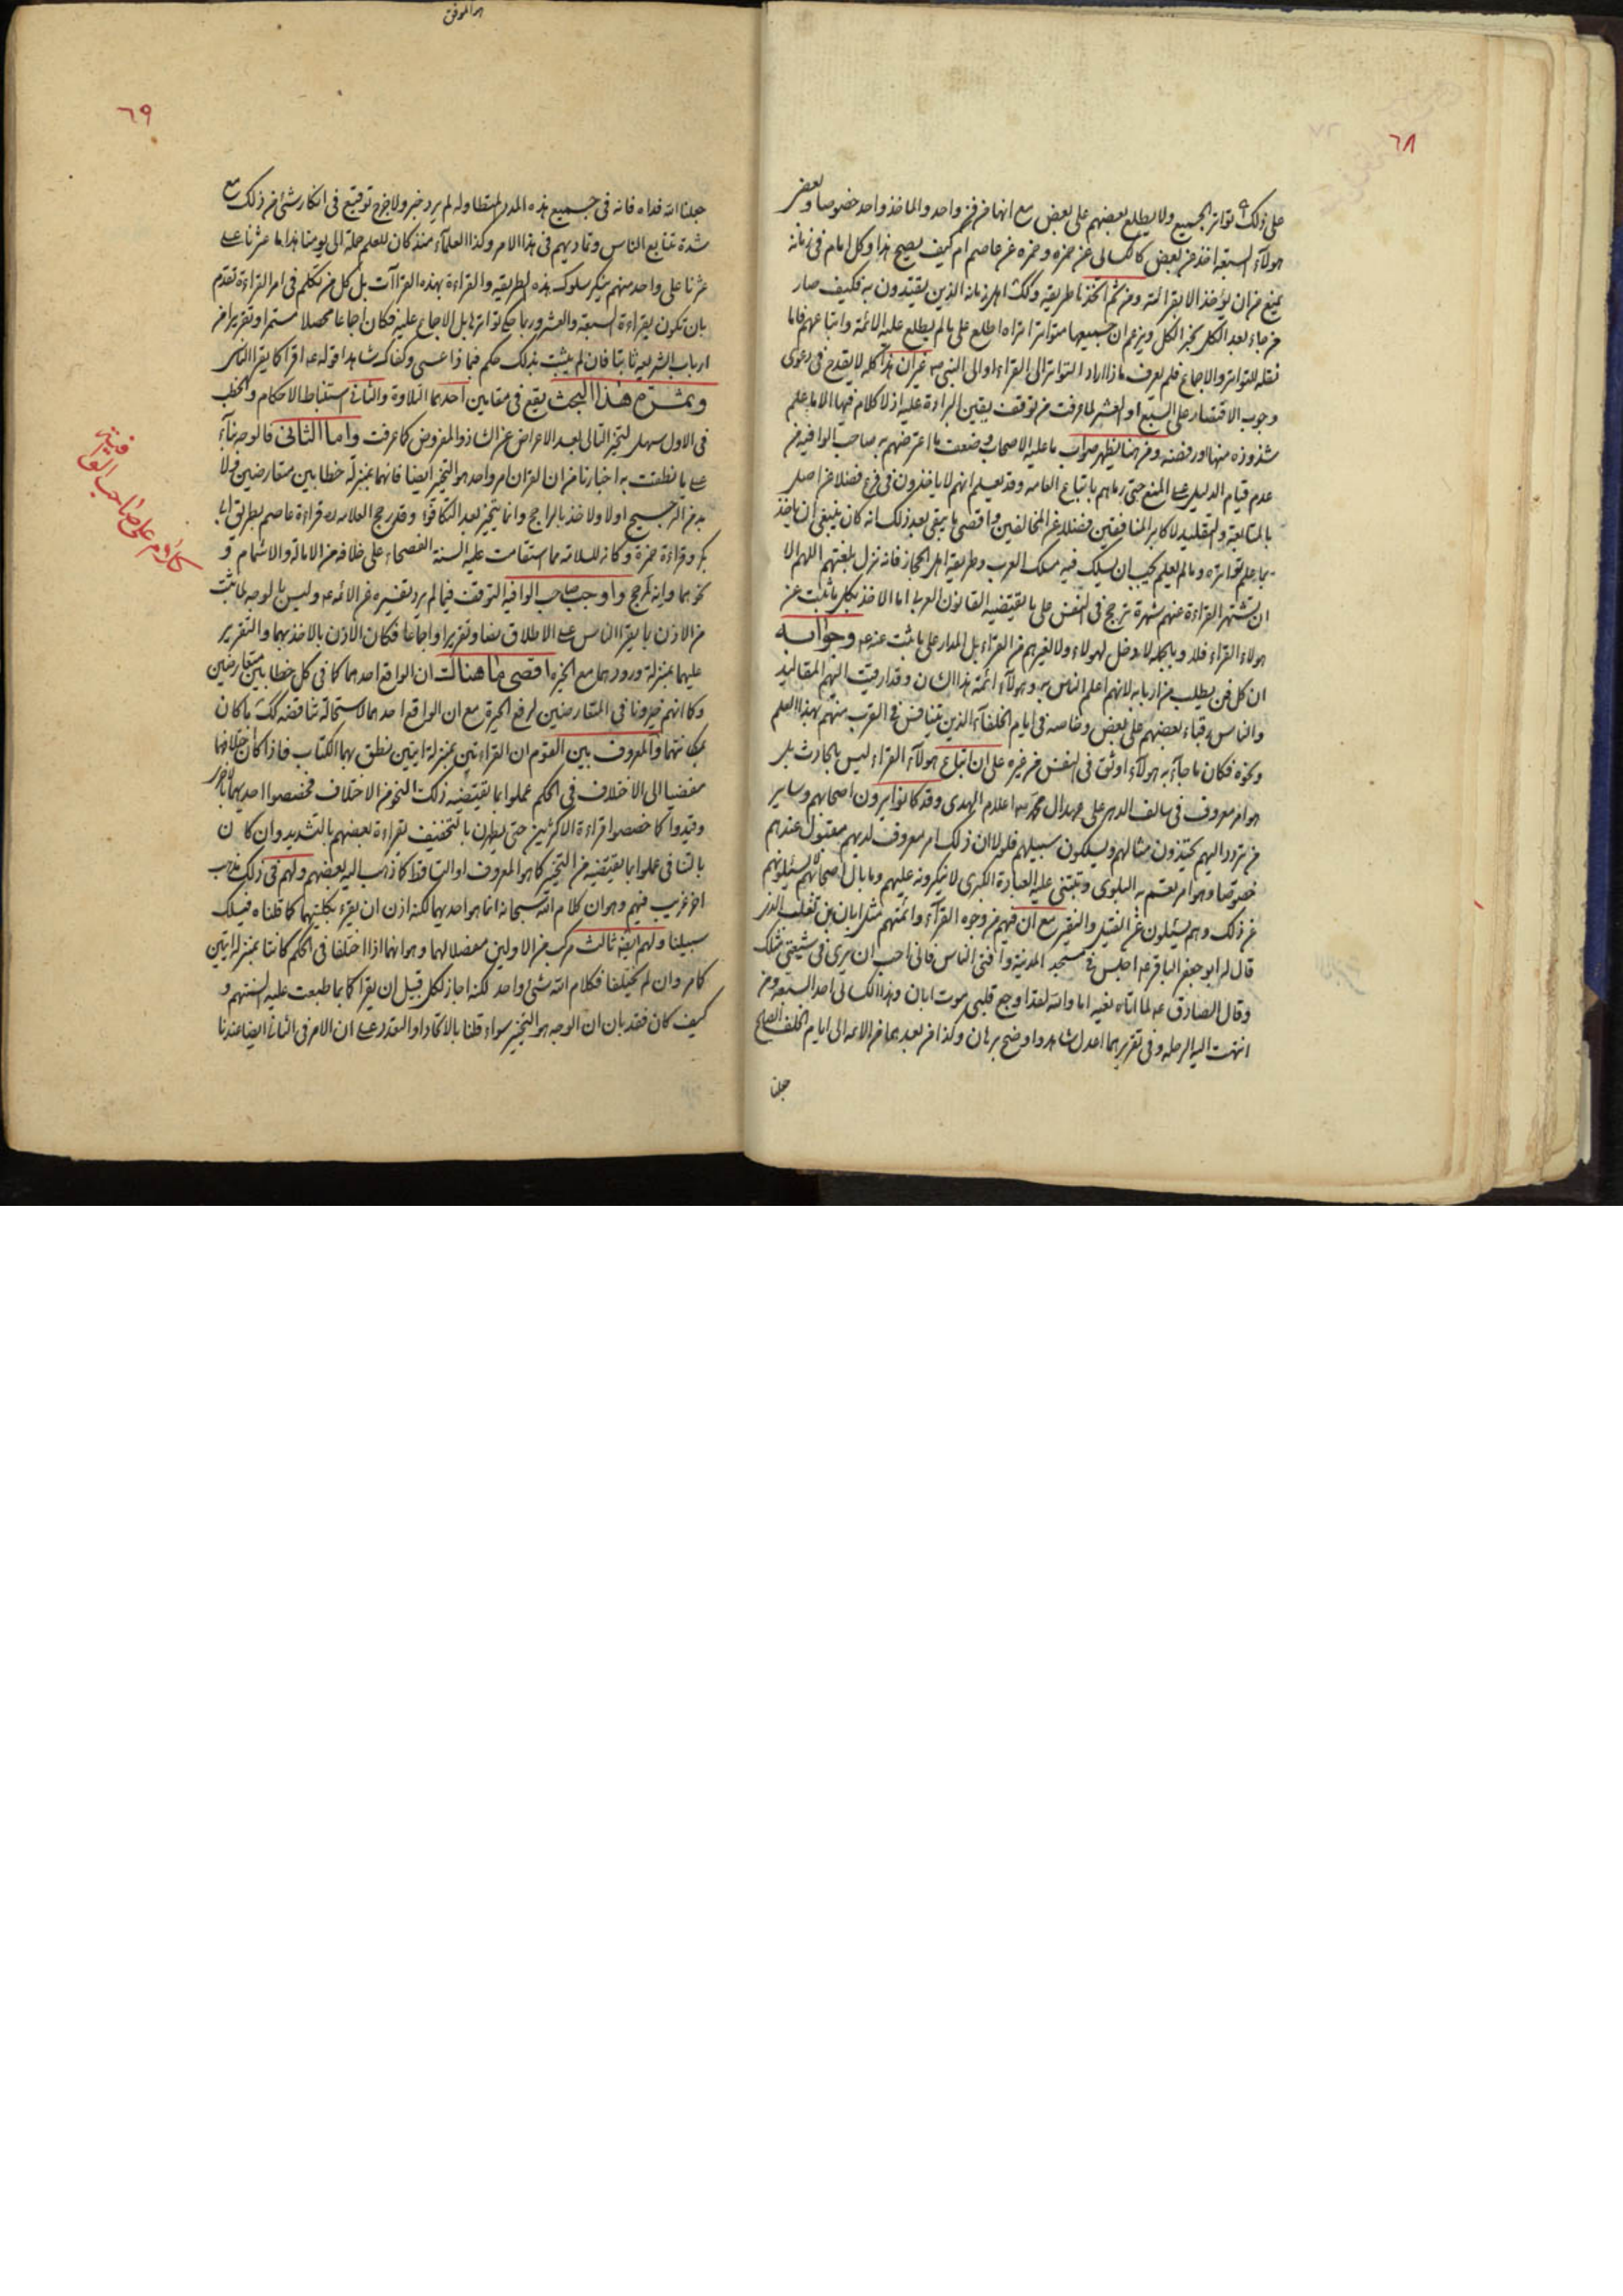 ٦٨
على ذلك تواتر الجميع ولا يطلع بعضهم على بعض مع انها من فن واحد والماخذ واحد خصوصا وبعض
هولآء السبعة اخذ عن بعض كالكسائى عن حمزه وحمزه عن عاصم ام كيف يصح هذا وكل امام فى زمانه
يمنع من ان يؤخذ الا بقرائته ومن ثم اتخذ طريقه وكك اهل زمانه الذين يقتدون به فكيف صار
من جاء بعد الكل يخبر الكل ويزعم ان جميعها متواتر اتراه اطلع على ما لم يطلع عليه الائمة واتباعهم فاما
نقله للتواتر والاجماع فلم يعرف ماذا اراد التواتر الى القراء او الى النبى ص غير ان هذا كله لا يقدح فى دعوى
وجوب الاقتصار على السبع او العشر لما عرفت من توقف يقين البراءة عليه اذ لا كلام فيها الا ما علم
شذوذه منها او رفضه ومن هنا يظهر صواب ما عليه الاصحاب وضعف ما اعترضهم به صاحب الوافيه من
عدم قيام الدليل على المنع حتى رماهم باتباع العامه وقد يعلم انهم لا ياخذون فى فرع فضلا عن اصل
بالمتابعة والتقليد لاكابر المنافقين فضلا عن المخالفين واقصى ما يبقى بعد ذلك انه كان ينبغى ان ياخذ
بما علم تواتره وما لم يعلم يجب ان يسلك فيه مسلك العرب وطريقة اهل الحجاز فانه نزل بلغتهم اللهم الا
ان تشتهر القراءة عنهم شهرة ترجح فى النفس على ما يقتضيه القانون العربى اما الاخذ بكل ما ثبت عن
هولاء القراء فلا وبالجمله لا دخل لهولاء ولا لغيرهم من القراء بل المدار على ما ثبت عنه ع وجوابه
ان كل فن يطلب من اربابه لانهم اعلم الناس به وهولآء ائمة هذا الشان وقد القيت اليهم المقاليد
والناس رقباء بعضهم على بعض وخاصه فى ايام الخلفآء الذين يتنافس فى القرب منهم بهذا العلم
ونحوه فكان ما جآء به هولآء اوثق فى النفس من غيره على ان اتباع هولآء القراء ليس بالحادث بل
هو امر معروف فى سالف الدهر على عهد ال محمد ص اعلام الهدى وقد كانوا يرون اصحابهم وساير
من تردد اليهم يحتذون مثالهم ويسلكون سبيلهم فلولا ان ذلك امر معروف لديهم مقبول عندهم
خصوصا وهو امر تعم به البلوى وتبتنى عليه العبادة الكبرى لانكروه عليهم وما بال اصحابهم لا يسئلونهم
عن ذلك وهم يسئلون عن الفتيل والنقير مع ان فيهم من وجوه القرآء وائمتهم مثل ابان بن تغلب الذى
قال له ابو جعفر الباقر ع اجلس فى مسجد المدينة وافت الناس فانى احب ان يرى فى شيعتى مثلك
وقال الصادق ع لما اتاه نعيه اما والله لقد اوجع قلبى موت ابان وهذا الكسائى احد السبعة ومن
انتهت اليه الرحله وفى تقريرهما اعدل شاهد واوضح برهان وكذا من بعدهما من الائمه الى ايام الخلف الصالح
جعلنا
هو الموفق
٦٩
جعلنا الله فداه فانه فى جميع هذه المدد المتطاوله لم يرد خبر ولا خرج توقيع فى انكار شئ من ذلك مع
شدة تتابع الناس وتماديهم فى هذا الامر وكذا العلمآء منذ كان للعلم جملة الى يومنا هذا ما عثرنا على
عثرنا على واحد منهم ينكر سلوك هذه الطريقه والقراءة بهذه القراآت بل كل من تكلم فى امر القراءة تقدم
بان تكون بقراءة السبعة والعشر وربما حكى تواترها بل الاجماع عليه فكان اجماعا محصلا مستمرا وتقريرا من
ارباب الشريعة ثابتا فان لم يثبت بذلك حكم فبماذا عسى وكفاك شاهدا قوله ع اقرأ كما يقرا الناس
وثمرة هذا البحث يقع فى مقامين احدهما التلاوة والثانى استنباط الاحكام والخطب
فى الاول سهل لتخير التالى بعد الاعراض عن الشاذ والمفروض كما عرفت واما الثانى فالوجه بنآء
على ما نطقت به اخبارنا من ان القران امر واحد هو التخير ايضا فانهما بمنزلة خطابين متعارضين فلا
بد من الترجيح اولا والاخذ بالراجح وانما يتخير بعد التكافؤ وقد رجح العلامه ره قراءة عاصم بطريق ابى
بكر وقراءة حمزة وكانه للسلامه مما استقامت عليه السنة الفصحاء على خلافه من الامالة والاشمام و
نحوهما وانه لمرجح واوجب صاحب الوافيه التوقف فيما لم يرد تفسيره عن الائمه ع وليس بالوجه لما ثبت
من الاذن بما يقرا الناس على الاطلاق نصا وتقريرا واجماعا فكان الاذن بالاخذ بهما والتقرير
عليهما بمنزلة ورودهما مع الخيره اقصى ما هنالك ان الواقع احدهما كما فى كل خطابين متعارضين
وكما انهم خيرونا فى المتعارضين لرفع الحيرة مع ان الواقع احدهما لاستحالة تناقضه كك ما كان
بمكانتهما والمعروف بين القوم ان القراءتين بمنزلة ايتين نطق بهما الكتاب فاذا كان اختلافهما
مفضيا الى الاختلاف فى الحكم عملوا بما تقتضيه ذلك النحو من الاختلاف فخصصوا احديهما بالاخرى
وقيدوا كما خصصوا قراءة الاكثرين حتى يطهرن بالتخفيف لقراءة بعضهم بالتشديد وان كان
بالتنافى عملوا بما يقتضيه من التخيير كما هو المعروف او التساقط كما ذهب اليه بعضهم ولهم فى ذلك مذهب
اخر غريب فيهم وهو ان كلام الله سبحانه انما هو احديهما لكنه اذن ان يقرء بكلتيهما كما قلناه فيسلك
سبيلنا ولهم ايضا ثالث مركب من الاولين مفصلا لهما وهو انهما اذا اختلفا فى الحكم كانتا بمنزلة ايتين
كامر وان لم يختلفا فكلام الله شئ واحد لكنه اجاز لكل قبيل ان يقرا كما بما طبعت عليه السنتهم و
كيف كان فقد بان ان الوجه هو التخير سواء قلنا بالاتحاد او التعدد على ان الامر فى الثانى ايضا عندنا
كلام على صاحب